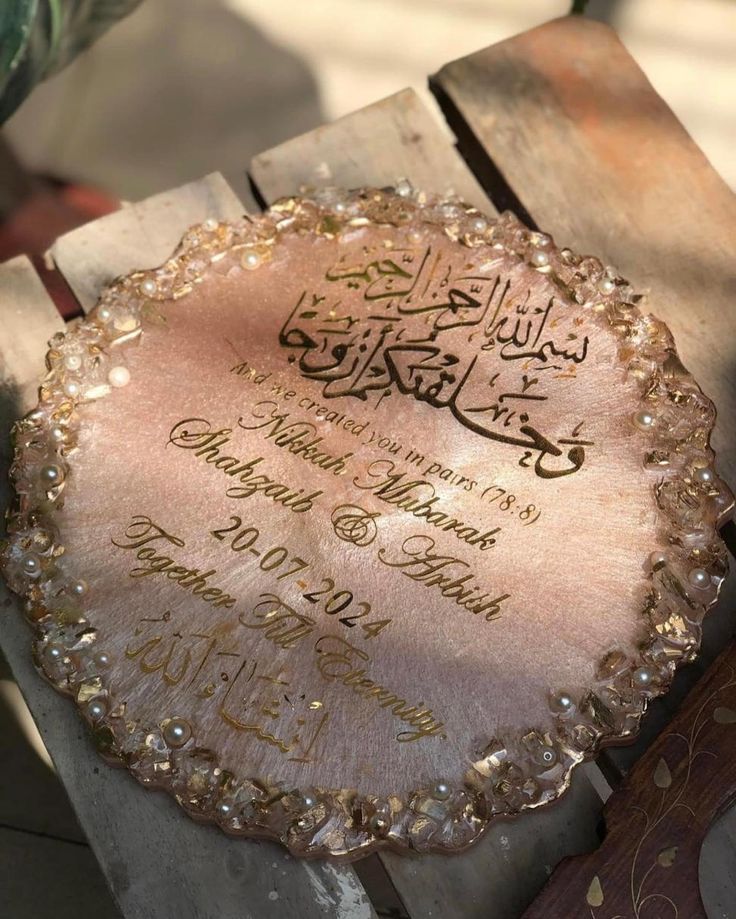 بسم الله الرحمن الرحيم
وخلقنكم أزوجا
And we created you in pairs (78:8)
Nikkah Mubarak
Shahzaib & Arbish
20-07-2024
Together Till Eternity.
إنشاء الله